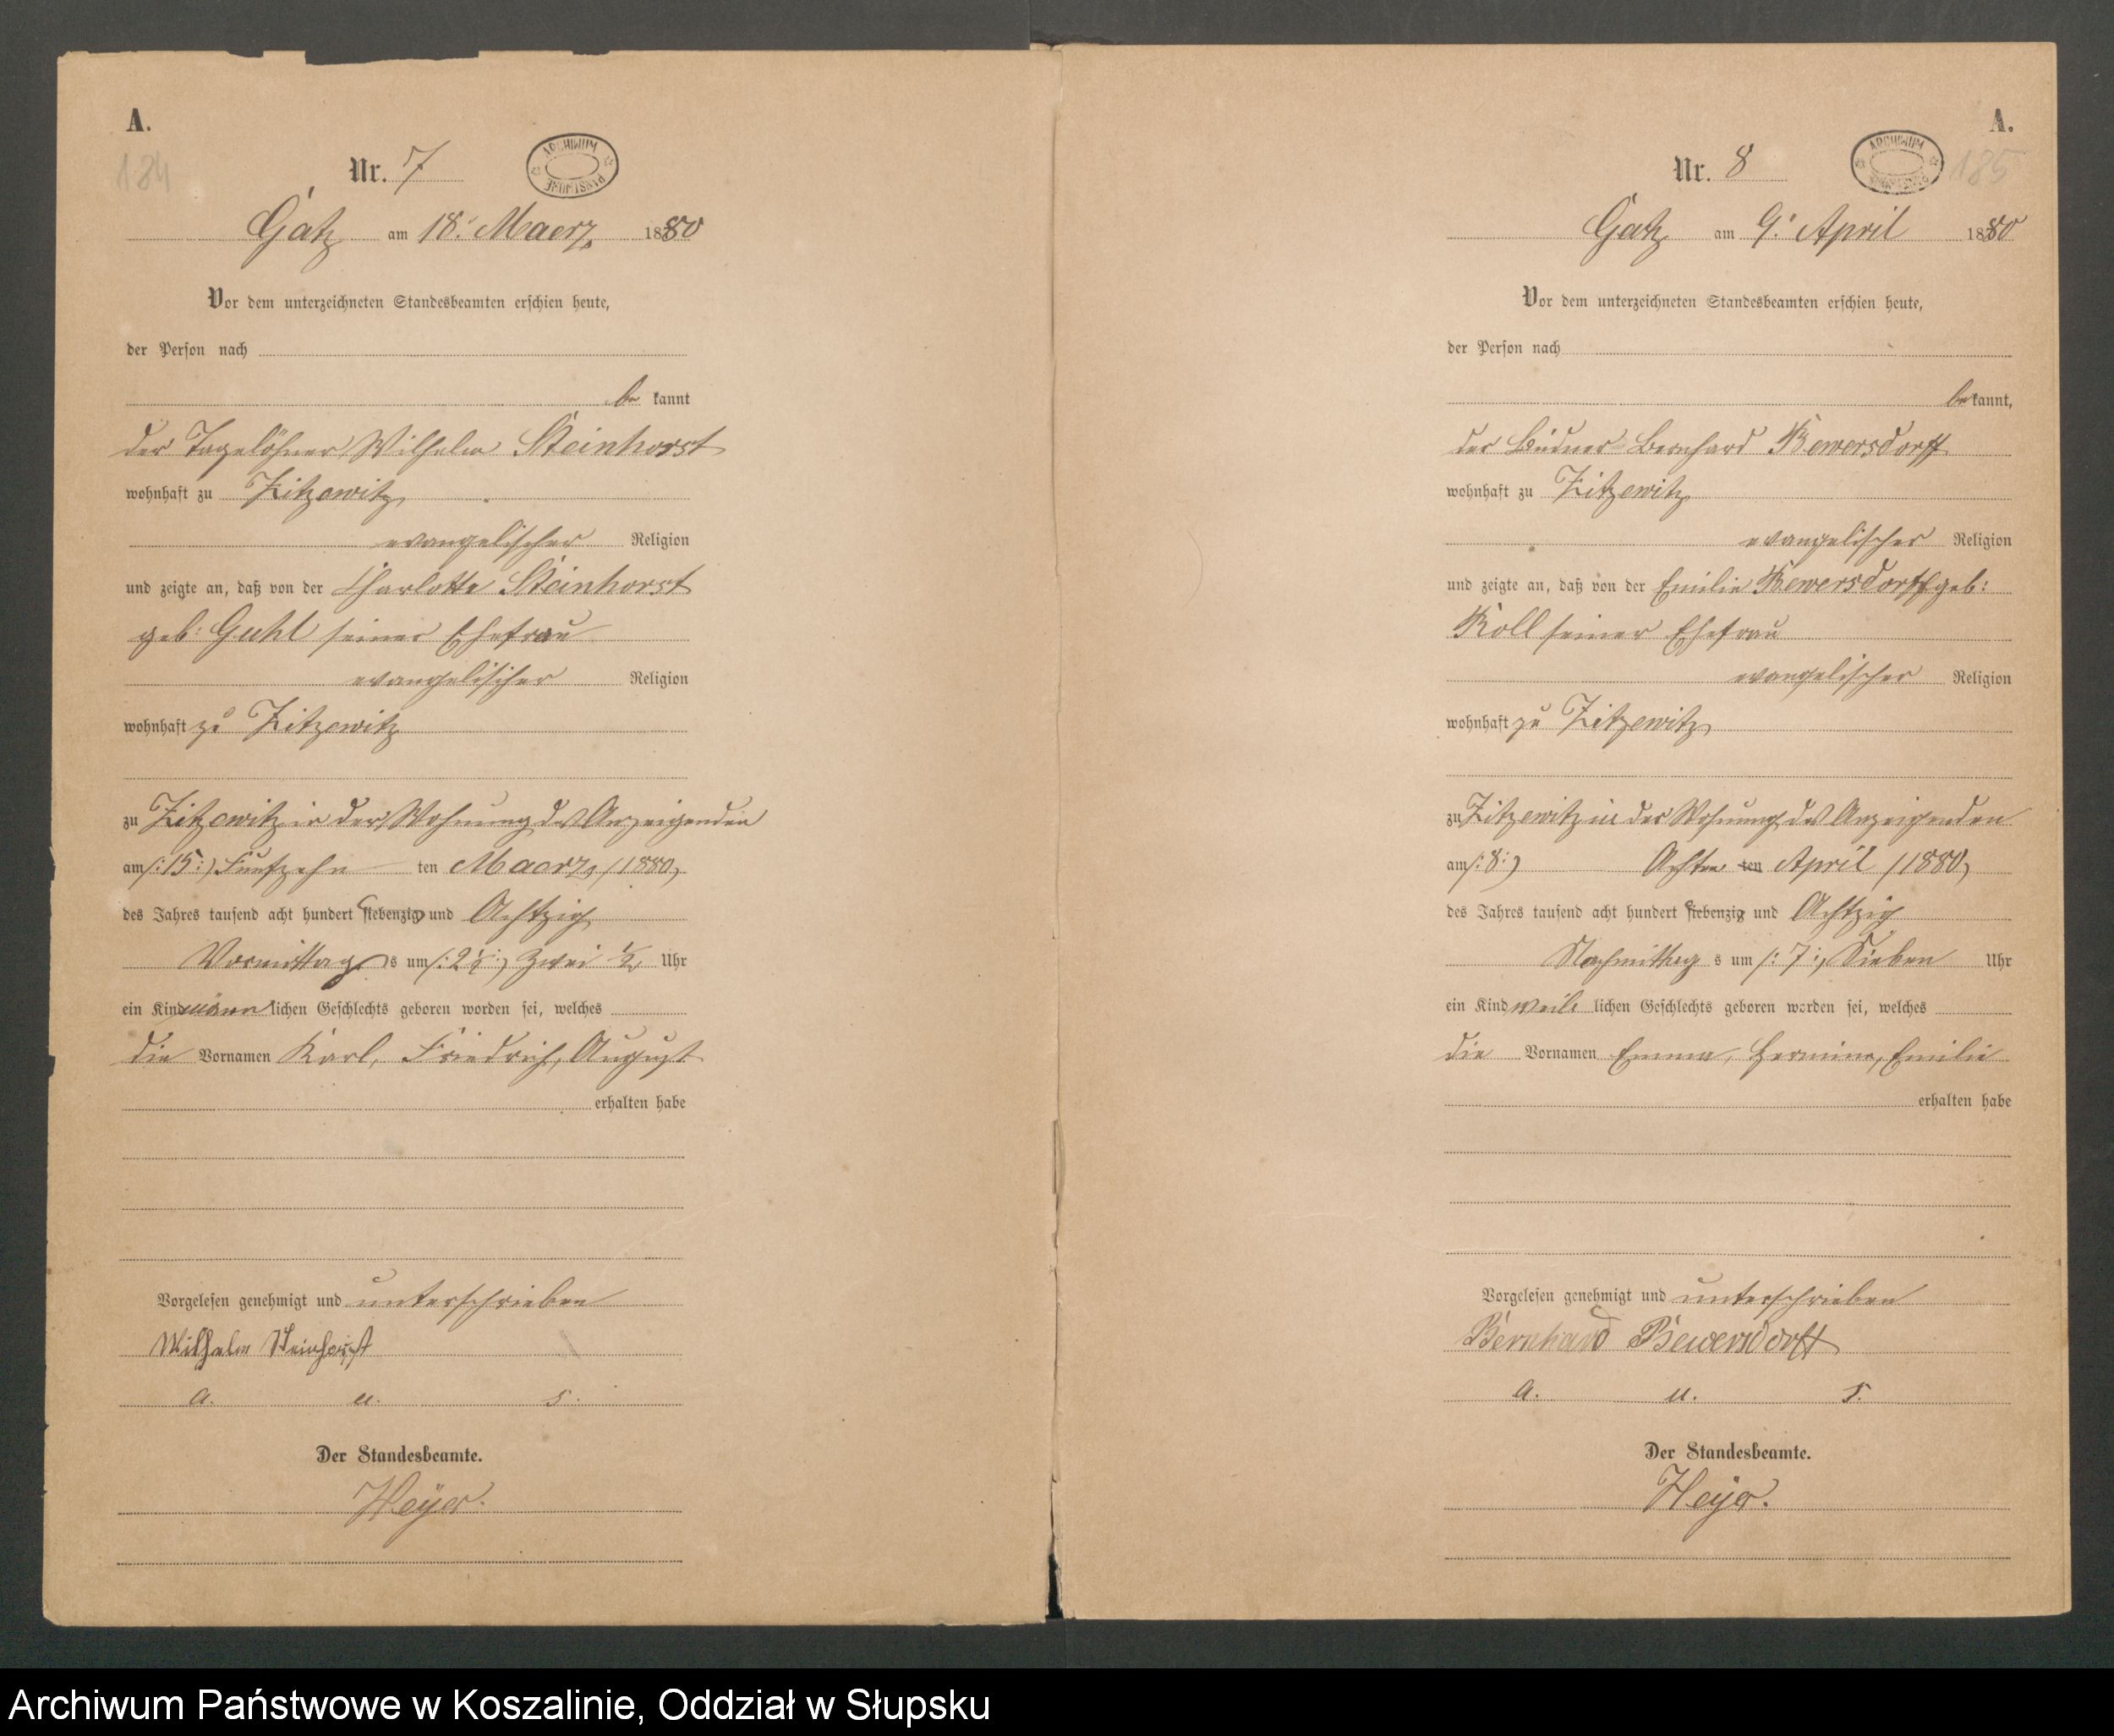 A.
184
Nr. 7
ARCHIWUM PAŃSTWOWE
Gatz am 18. Maerz 1880
Vor dem unterzeichneten Standesbeamten erschien heute,
der Person nach
be kannt
der Tagelöhner Wilhelm Steinhorst
wohnhaft zu Zitzewitz,
evangelischer Religion
und zeigte an, daß von der Charlotte Steinhorst
geb: Guhl seiner Ehefrau
evangelischer Religion
wohnhaft zu Zitzewitz
zu Zitzewitz in der Wohnung des Anzeigenden
am /:15:/ Fünfzehn ten Maerz /1880,
des Jahres tausend acht hundert siebenzig und Achtzig
Vormittag s um /:2½:/ zwei ½ Uhr
ein Kind männlichen Geschlechts geboren worden sei, welches
die Vornamen Karl, Friedrich, August
erhalten habe
Vorgelesen genehmigt und unterschrieben
Wilhelm Steinhorst
a. u. s.
Der Standesbeamte.
Heyer.
A.
185
Nr. 8
ARCHIWUM PAŃSTWOWE
Gatz am 9. April 1880
Vor dem unterzeichneten Standesbeamten erschien heute,
der Person nach
be kannt,
der Büdner Bernhard Bewersdorff
wohnhaft zu Zitzewitz
evangelischer Religion
und zeigte an, daß von der Emilie Bewersdorff geb:
Roll seiner Ehefrau
evangelischer Religion
wohnhaft zu Zitzewitz,
zu Zitzewitz in der Wohnung des Anzeigenden
am /:8:/ Achten ten April /1880,
des Jahres tausend acht hundert siebenzig und Achtzig
Nachmittag s um /:7:/ Sieben Uhr
ein Kind weiblichen Geschlechts geboren worden sei, welches
die Vornamen Emma, Hermine, Emilie
erhalten habe
Vorgelesen genehmigt und unterschrieben
Bernhard Bewersdorff
a. u. s.
Der Standesbeamte.
Heyer.
Archiwum Państwowe w Koszalinie, Oddział w Słupsku